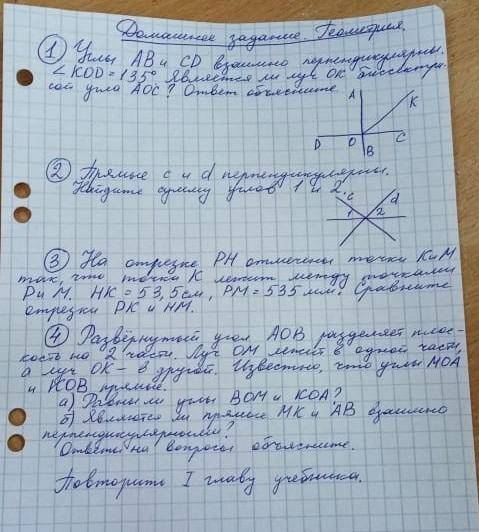 Домашнее задание. Геометрия.
① Углы AB и CD взаимно перпендикулярны.
∠KOD = 135° Является ли луч OK биссектри-
сой угла AOC? Ответ объясните.
A
K
D
O
C
B
② Прямые c и d перпендикулярны.
Найдите сумму углов 1 и 2.
c
d
1
2
③ На отрезке PH отмечены точки K и M
так, что точка K лежит между точками
P и M. HK = 53,5 см, PM = 535 мм. Сравните
отрезки PK и HM.
④ Развёрнутый угол AOB разделяет плос-
кость на 2 части. Луч OM лежит в одной части,
а луч OK – в другой. Известно, что углы MOA
и KOB прямые.
а) Равны ли углы BOM и KOA?
б) Являются ли прямые MK и AB взаимно
перпендикулярными?
Ответы на вопросы объясните.
Повторить I главу учебника.